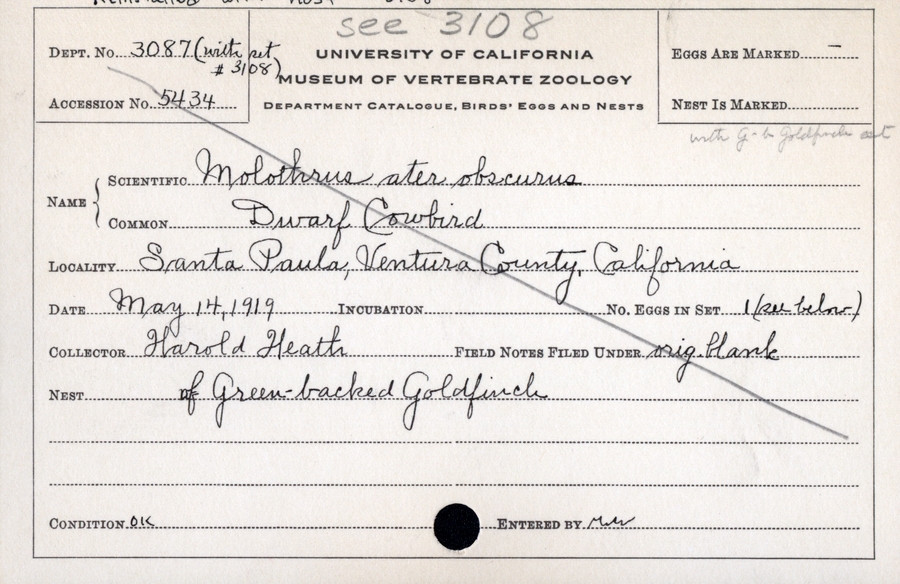 see 3108
DEPT. No. 3087 (with set # 3108)
UNIVERSITY OF CALIFORNIA
MUSEUM OF VERTEBRATE ZOOLOGY
DEPARTMENT CATALOGUE, BIRDS' EGGS AND NESTS
EGGS ARE MARKED –
ACCESSION No. 5434
NEST IS MARKED
with G-b Goldfinch set
NAME
SCIENTIFIC Molothrus ater obscurus
COMMON Dwarf Cowbird
LOCALITY Santa Paula, Ventura County, California
DATE May 14, 1919 INCUBATION No. EGGS IN SET 1 (see below)
COLLECTOR Harold Heath FIELD NOTES FILED UNDER orig. blank
NEST of Green-backed Goldfinch
CONDITION OK ENTERED BY